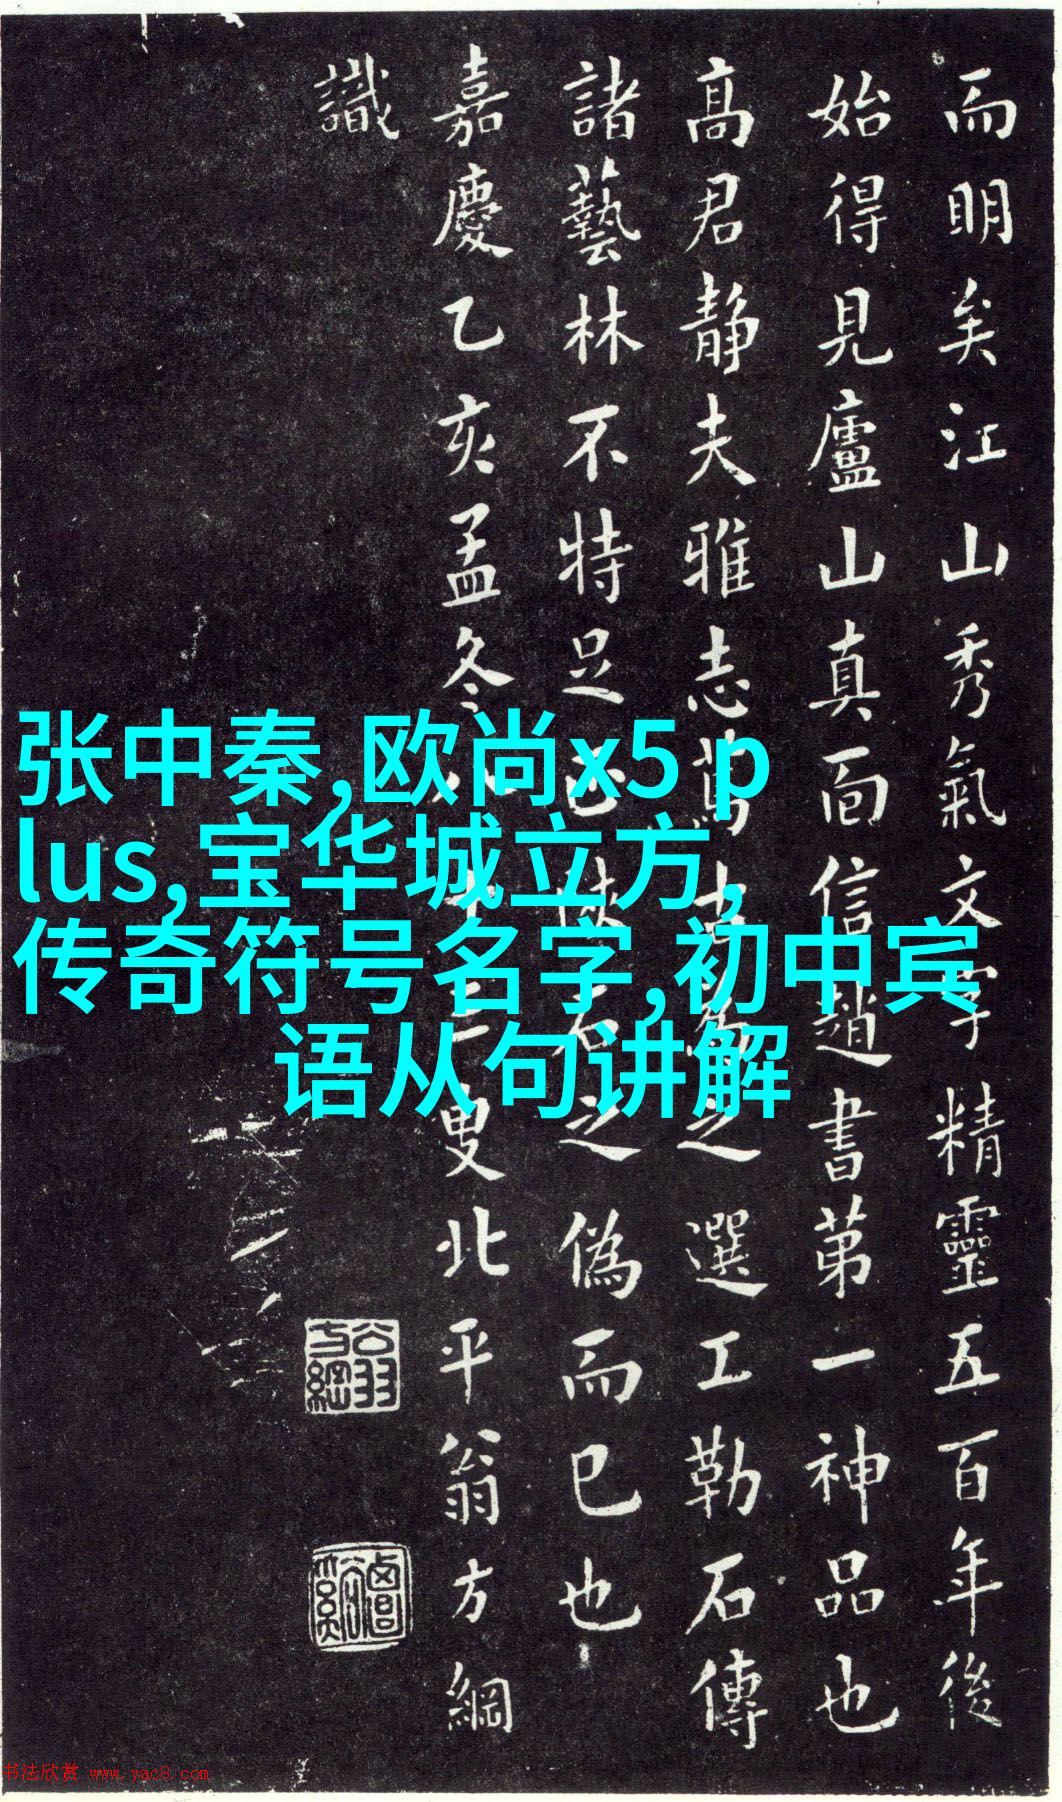 而明矣江山秀氣文字精靈五百年後
始得見廬山真面信趙書第一神品也
高君静夫雅志篤古為之選工勒石傳
諸藝林不特足正之偽而已也
嘉慶乙亥孟冬叟北平翁方綱
識
张中秦,欧尚x5 p
lus,宝华城立方,
传奇符号名字,初中宾
语从句讲解
翁方綱
书法欣赏 www.yac8.com